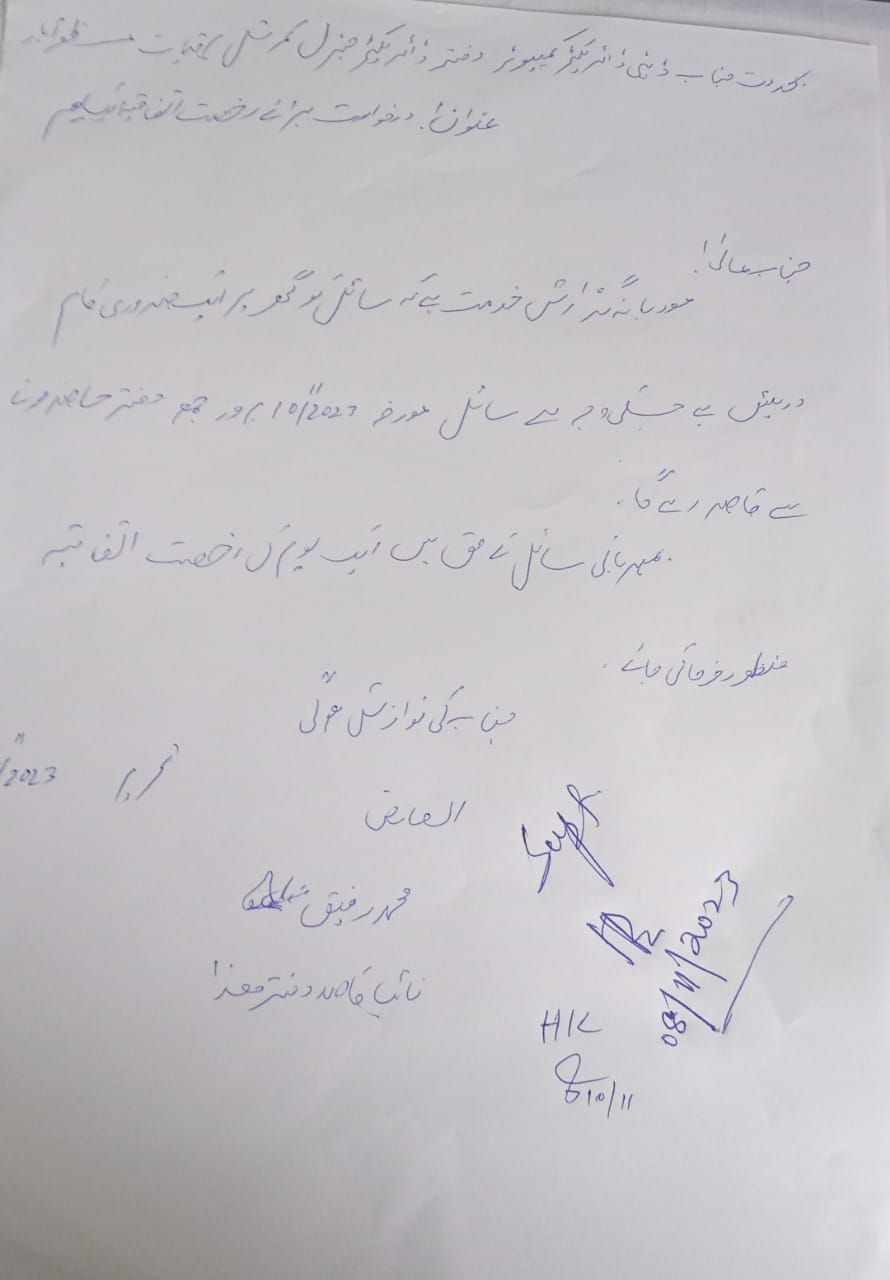 بخدمت جناب ڈپٹی ڈائریکٹر کمپیوٹر دفتر ڈائریکٹر جنرل کمرشل برقیات مظفرآباد
عنوان: درخواست برائے رخصت اتفاقیہ
جناب عالیٰ!
مودبانہ گزارش خدمت ہے کہ سائل کو گھر پر ایک ضروری کام
درپیش ہے جسکی وجہ سے سائل مورخہ 10/11/2023 بروز جمعہ دفتر حاضر ہونے
سے قاصر رہے گا۔
مہربانی سائل کے حق میں ایک یوم کی رخصت اتفاقیہ
منظور فرمائی جائے۔
جناب کی نوازش ہوگی
/11/2023
العارض
محمد رفیق
نائب قاصد دفتر ھذا
Supt.
08/11/2023
HK
10/11